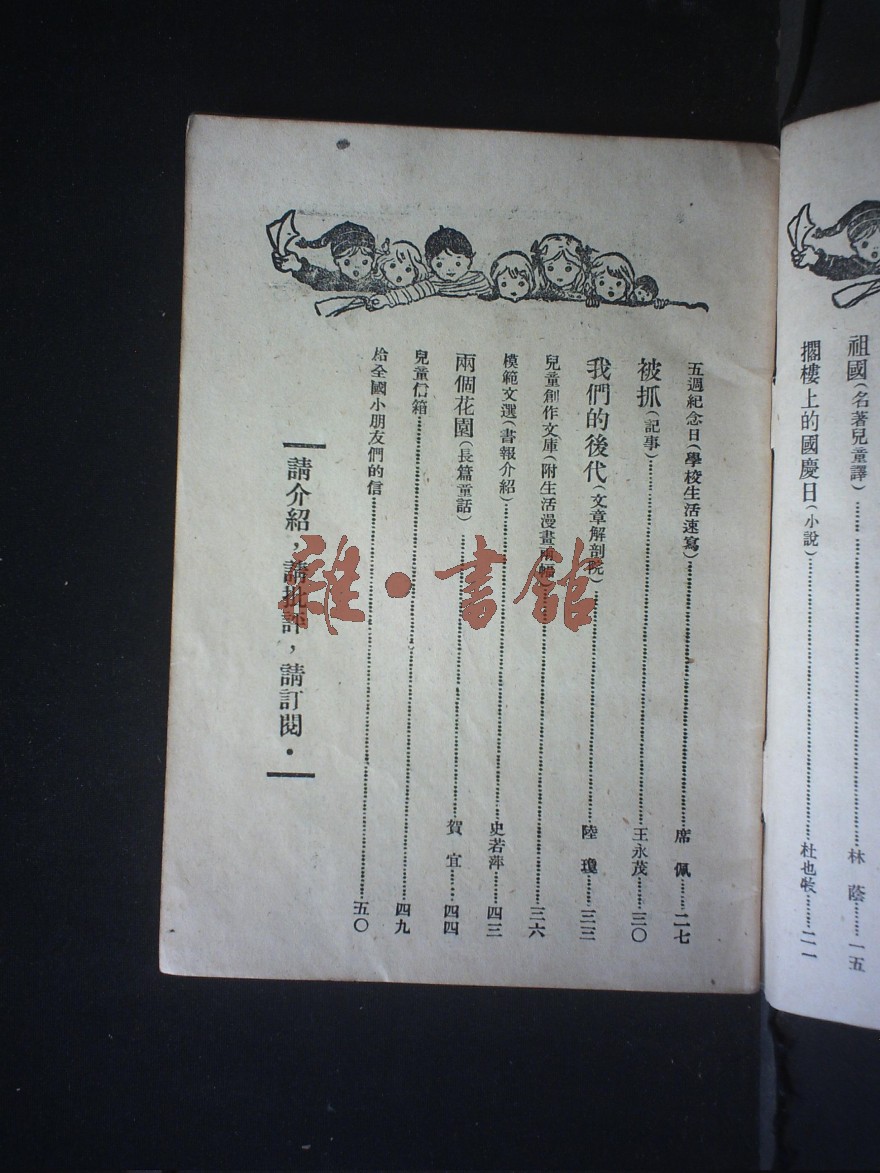 祖國（名著兒童譯）……林　蔭……一五
擱樓上的國慶日（小說）……杜也牧……二一
五週紀念日（學校生活速寫）……席　佩……二七
被抓（記事）……王永茂……三〇
我們的後代（文章解剖院）……陸　瓊……三三
兒童創作文庫（附生活漫畫兩幅）……三六
模範文選（書報介紹）……史若萍……四三
兩個花園（長篇童話）……賀　宜……四四
兒童信箱……四九
給全國小朋友們的信……五〇
請介紹，請批評，請訂閱．
雜·書館